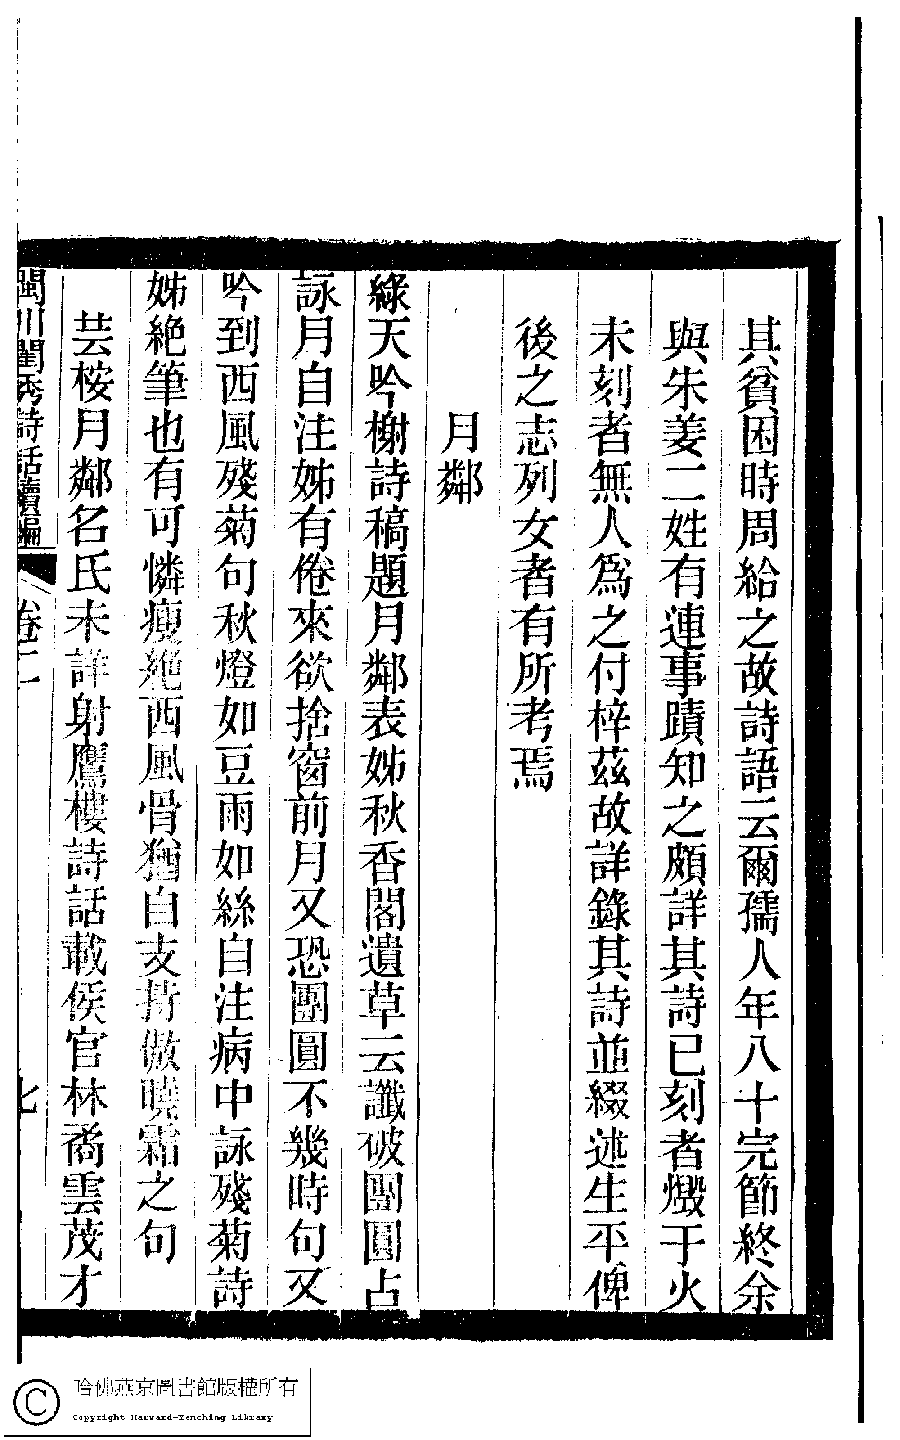 其貧困時周給之故詩語云爾孺人年八十完節終余
與朱姜二姓有連事蹟知之頗詳其詩已刻者燬于火
未刻者無人爲之付梓茲故詳錄其詩並綴述生平俾
後之志列女者有所考焉
月鄰
綠天吟榭詩稿題月鄰表姊秋香閣遺草云讖破團圓占
詠月自注姊有倦來欲捨窗前月又恐團圓不幾時句又
吟到西風殘菊句秋燈如豆雨如絲自注病中詠殘菊詩
姊絕筆也有可憐瘦絕西風骨猶自支持傲曉霜之句
芸桉月鄰名氏未詳射鷹樓詩話載侯官林矞雲茂才
閩川閨秀詩話續編 卷二 七
哈佛燕京圖書館版權所有
Copyright Harvard-Yenching Library